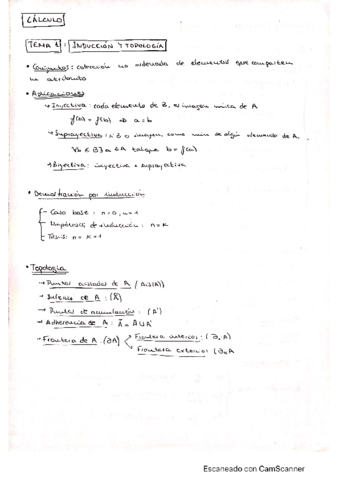 CÁLCULO
TEMA 1: INDUCCIÓN Y TOPOLOGÍA
• Conjuntos: colección no ordenada de elementos que comparten
un atributo
• Aplicaciones
→ Inyectiva: cada elemento de B, es imagen única de A
f(a) = f(b) ⇒ a = b
→ Suprayectiva: si B es imagen, como mín de algún elemento de A.
∀b ∈ B ∃ a ∈ A tal que b = f(a)
→ Biyectiva: inyectiva + suprayectiva
• Demostración por inducción
- Caso base: n=0, n=1
- Hipótesis de inducción: n=k
- Tesis: n=k+1
• Topología
→ Puntos aislados de A (Ais(A))
→ Interior de A: (Å)
→ Puntos de acumulación: (A')
→ Adherencia de A: Ā = A ∪ A'
→ Frontera de A: (∂A)
Frontera interior: (∂ A)
Frontera exterior: (∂ A
Escaneado con CamScanner